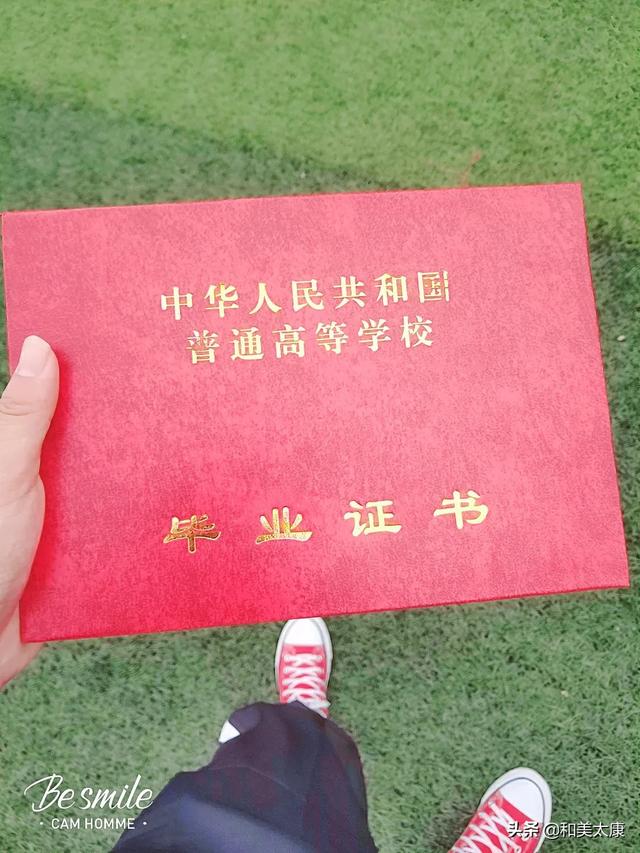 中华人民共和国
普通高等学校
毕业证书
Be smile
· CAM HOMME ·
头条 @和美太康